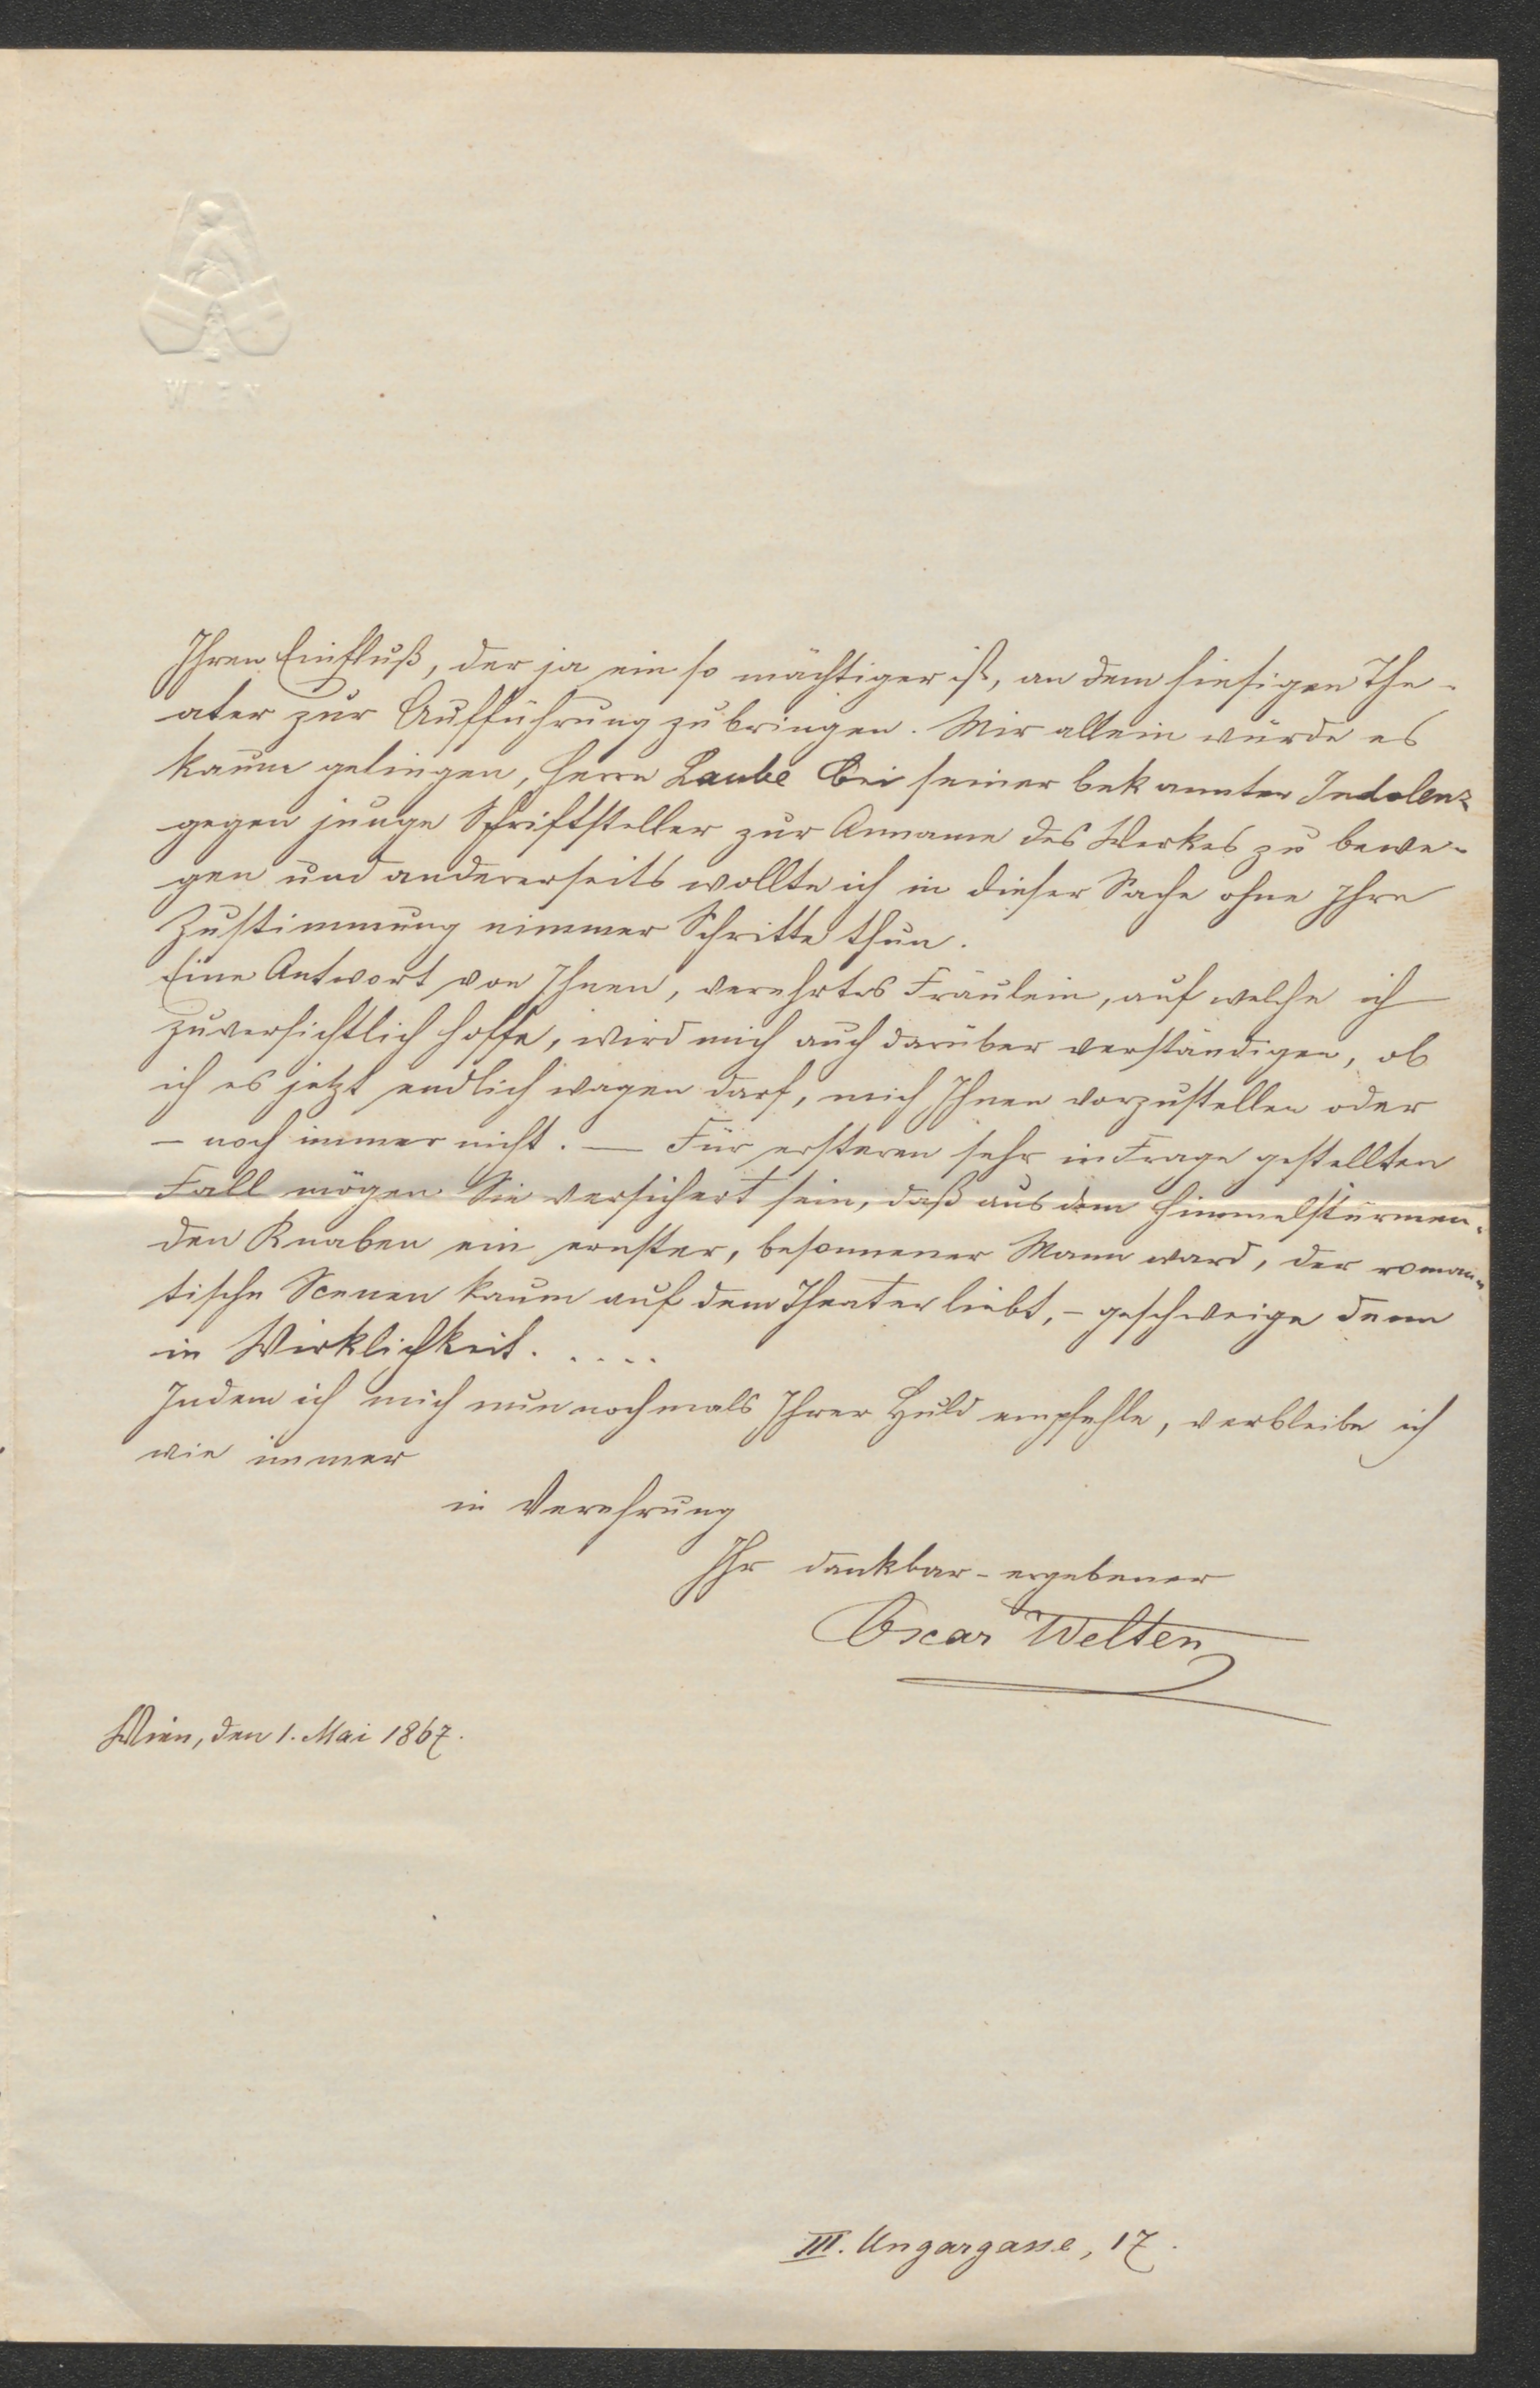 WIEN
Ihren Einfluß, der ja ein so mächtiger ist, an dem hiesigen The-
ater zur Aufführung zu bringen. Mir allein würde es
kaum gelingen, Herrn Laube bei seiner bekannten Indolenz
gegen junge Schriftsteller zur Anname des Werkes zu bewe-
gen und andererseits wollte ich in dieser Sache ohne Ihre
Zustimmung nimmer Schritte thun.
Eine Antwort von Ihnen, verehrtes Fräulein, auf welche ich
zuversichtlich hoffe, wird mich auch darüber verständigen, ob
ich es jetzt endlich wagen darf, mich Ihnen vorzustellen oder
– noch immer nicht. — Für ersteren sehr in Frage gestellten
Fall mögen Sie versichert sein, daß aus dem himmelstürmen-
den Knaben ein ernster, besonnener Mann ward, der roman-
tische Scenen kaum auf dem Theater liebt, – geschweige denn
in Wirklichkeit. . . . .
Indem ich mich nun nochmals Ihrer Huld empfehle, verbleibe ich
wie immer
in Verehrung
Ihr dankbar-ergebener
Oscar Welten
Wien, den 1. Mai 1867.
III. Ungargasse, 17.